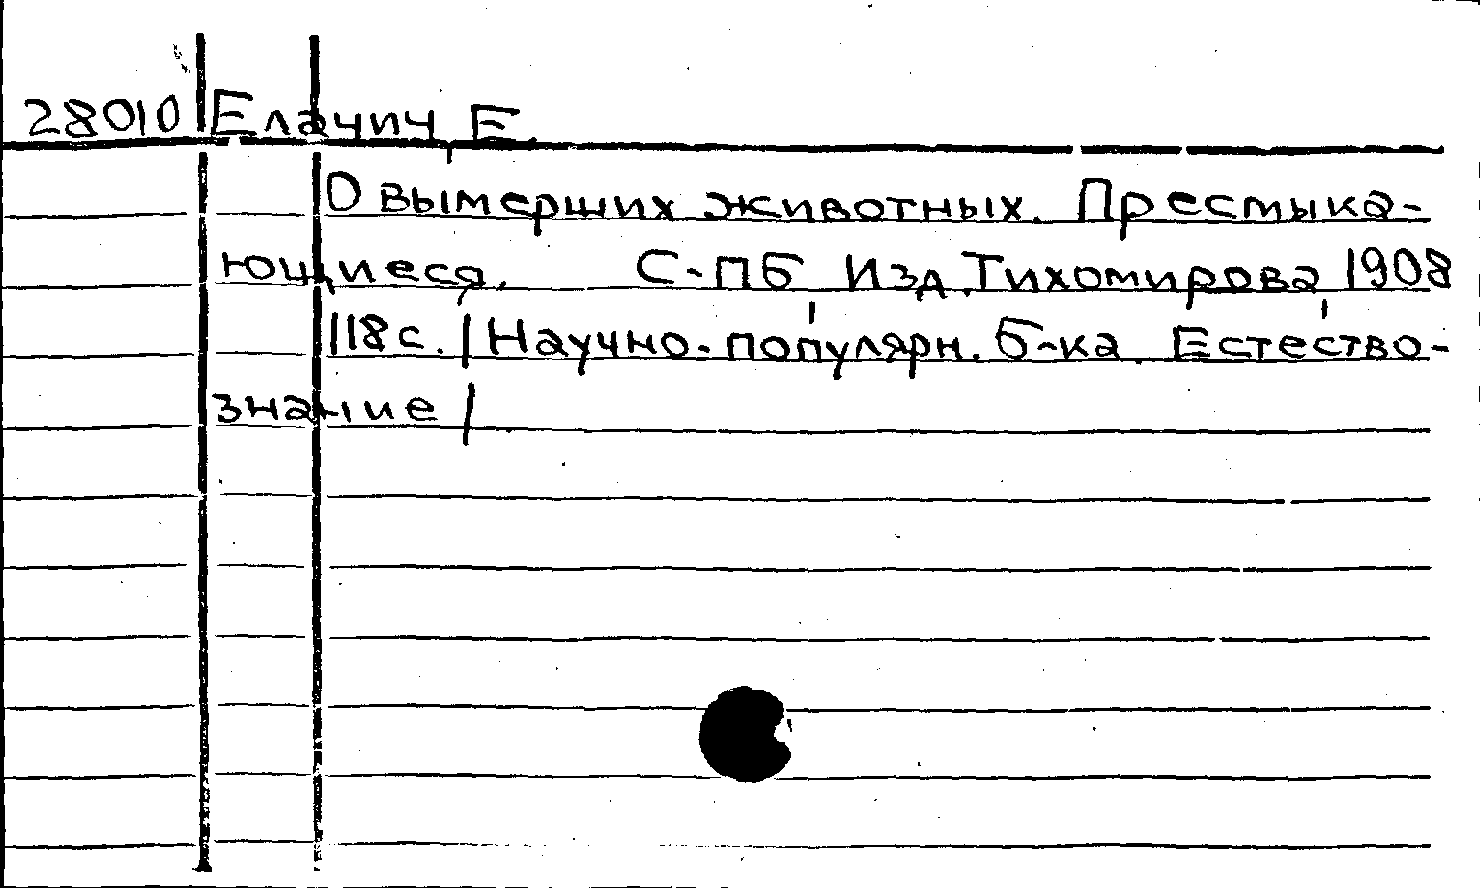 28010 Елачич, Е.
О вымерших животных. Престыка-
ющиеся. С-ПБ, Изд. Тихомирова, 1908
118с. /Научно-популярн. б-ка. Естество-
знание/